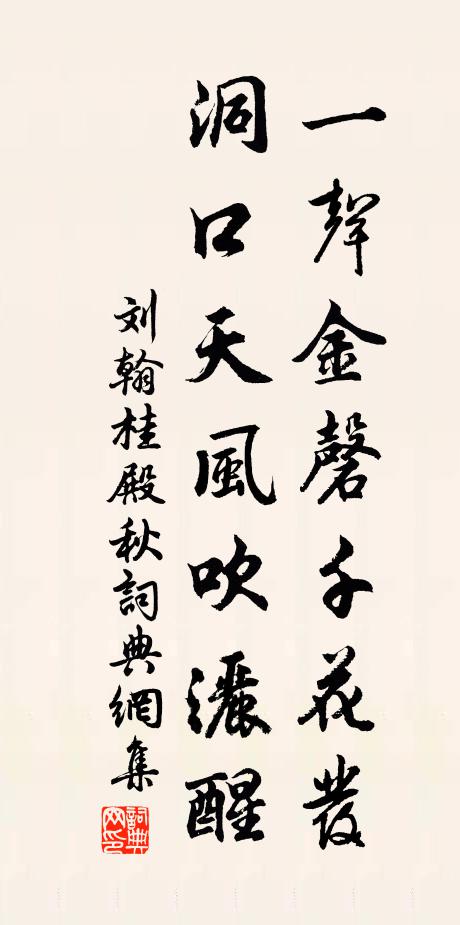 一聲金磬千花發
洞口天風吹灑醒
刘翰桂殿秋詞典網集
詞典网印